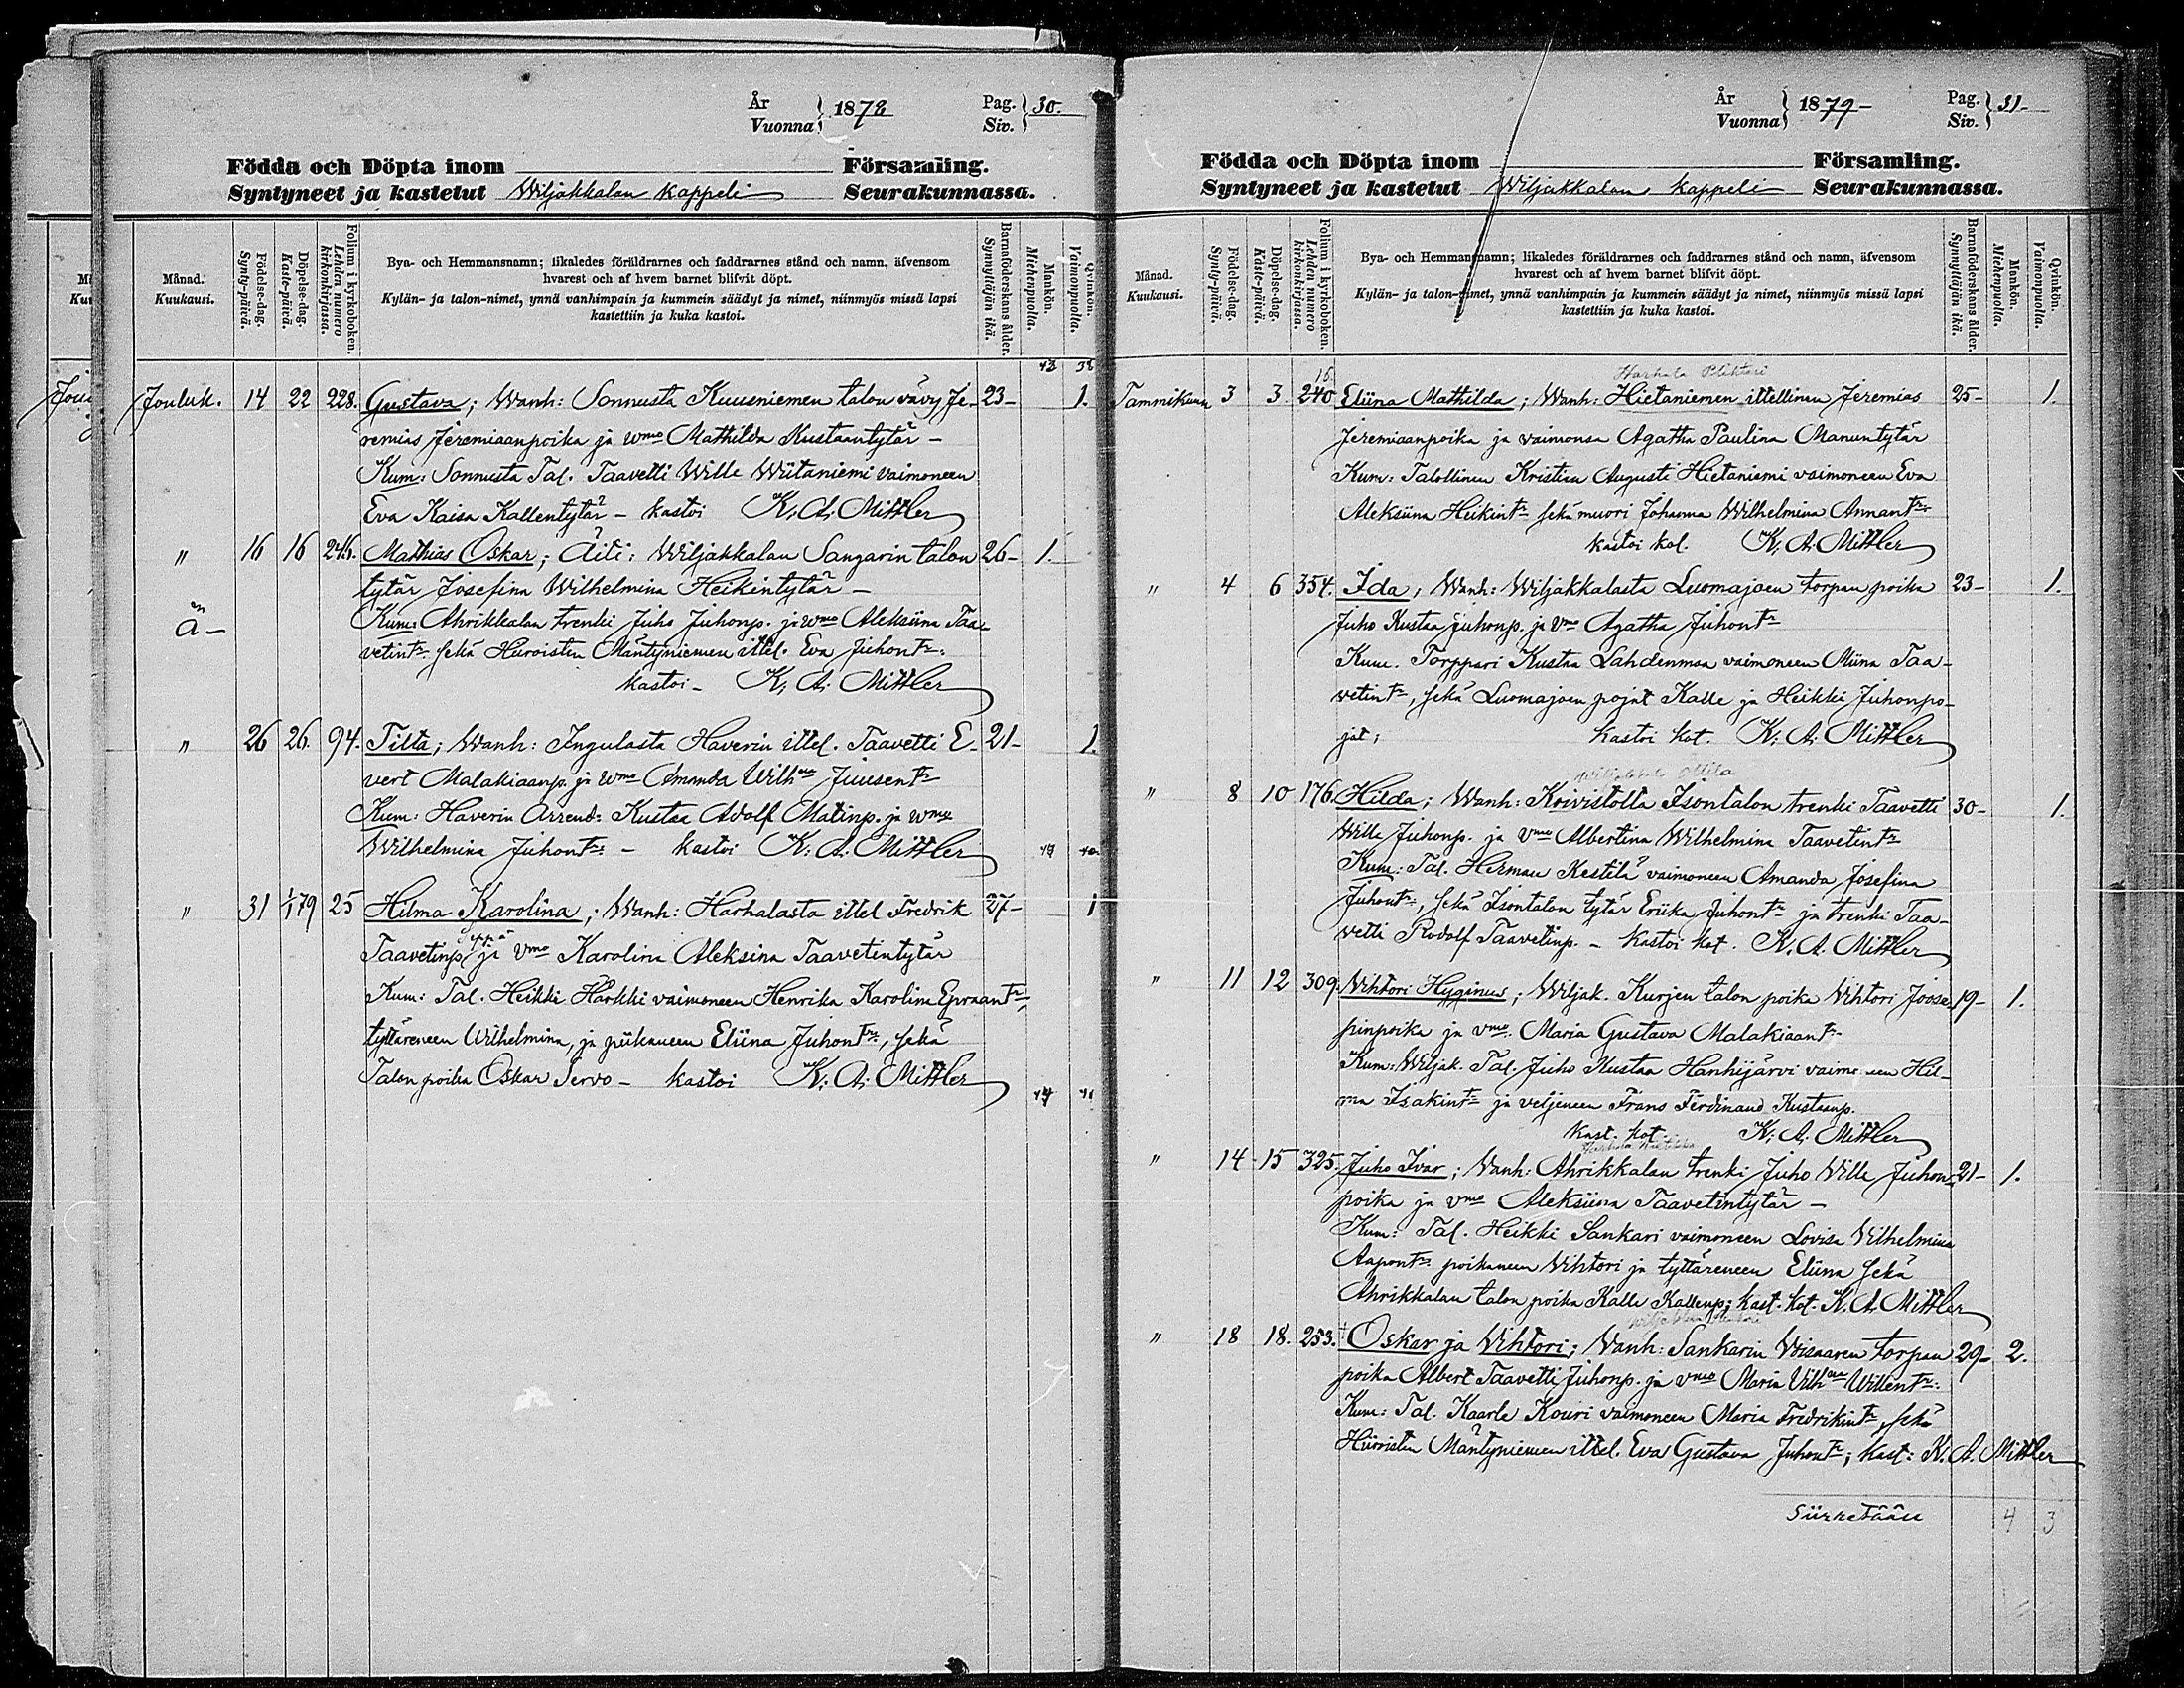 År
Vuonna } 1878
Pag.
Siv. } 30.
Födda och Döpta inom Församling.
Syntyneet ja kastetut Wiljakkalan kappeli Seurakunnassa.
Månad.
Kuukausi.
Födelse-dag.
Synty-päivä.
Döpelse-dag.
Kaste-päivä.
Folium i kyrkoboken.
Lehden numero
kirkonkirjassa.
Bya- och Hemmansnamn; likaledes föräldrarnes och faddrarnes stånd och namn, äfvensom
hvarest och af hvem barnet blifvit döpt.
Kylän- ja talon-nimet, ynnä vanhimpain ja kummein säädyt ja nimet, niinmyös missä lapsi
kastettiin ja kuka kastoi.
Barnaföderskans ålder.
Synnyttäjän ikä.
Mankön.
Miehenpuolla.
Qvinkön.
Vaimonpuolla.
43 38
Jouluk. 14 22 228. Gustava; Wanh: Sonnusta Kuuseniemen talon vävy Je- 23- 1.
remias Jeremiaanpoika ja wmo Mathilda Kustaantytär -
Kum: Sonnusta Tal. Taavetti Wille Wiitaniemi vaimoneen
Eva Kaisa Kallentytär - kastoi K. A. Mittler
" 16 16 246. Mathias Oskar; Äiti: Wiljakkalan Sangarin talon 26- 1.
tytär Josefina Wilhelmina Heikintytär -
ä -
Kum: Ahrikkalan trenki Juho Juhonp. ja wmo Aleksiina Taa-
vetintr. sekä Huroisten Mäntyniemen ittel. Eva Juhontr:
kastoi - K. A. Mittler
" 26 26. 94. Tilta; Wanh: Ingulasta Haverin ittel. Taavetti E- 21- 1.
vert Malakiaanp. ja wmo Amanda Wilhna Juusentr
Kum: Haverin Arrend: Kustaa Adolf Matinp. ja wmo
Wilhelmina Juhontr: - kastoi K. A. Mittler
" 31 1/1 79 25 Hilma Karolina; Wanh: Harhalasta ittel Fredrik 27- 1
Seppä
Taavetinp. ja vmo Karolina Aleksina Taavetintytär
Kum: Tal. Heikki Härkki vaimoneen Henrika Karolina Epraantr
tyttäreneen Wilhelmina, ja piikaneen Eliina Juhontr, sekä
Talon poika Oskar Servo - kastoi K. A. Mittler
44 41
År
Vuonna } 1879 -
Pag.
Siv. } 31 -
Födda och Döpta inom Församling.
Syntyneet ja kastetut Wiljakkalan kappeli Seurakunnassa.
Månad.
Kuukausi.
Födelse-dag.
Synty-päivä.
Döpelse-dag.
Kaste-päivä.
Folium i kyrkoboken.
Lehden numero
kirkonkirjassa.
Bya- och Hemmansnamn; likaledes föräldrarnes och faddrarnes stånd och namn, äfvensom
hvarest och af hvem barnet blifvit döpt.
Kylän- ja talon-nimet, ynnä vanhimpain ja kummein säädyt ja nimet, niinmyös missä lapsi
kastettiin ja kuka kastoi.
Barnaföderskans ålder.
Synnyttäjän ikä.
Mankön.
Miehenpuolla.
Qvinkön.
Vaimonpuolla.
15. Harhala
Tammikuun 3 3 240 Eliina Mathilda; Wanh: Hietaniemen ittellinen Jeremias 25- 1.
Jeremiaanpoika ja vaimonsa Agatha Paulina Manuntytär
Kum: Talollinen Kristian Augusti Hietaniemi vaimoneen Eva
Aleksiina Heikintr sekä muori Johanna Wilhelmina Annantr
kastoi kot. K. A. Mittler
" 4 6 354. Ida; Wanh: Wiljakkalasta Luomajoen torpan poika 23- 1.
Juho Kustaa Juhonp. ja vmo Agatha Juhontr
Kum. Torppari Kustaa Lahdenmaa vaimoneen Miina Taa-
vetintr, sekä Luomajoen pojat Kalle ja Heikki Juhonpo-
jat; kastoi kot. K. A. Mittler
Wiljakkala Ollila
" 8 10 176 Hilda; Wanh: Koivistolta Isontalon trenki Taavetti 30- 1.
Wille Juhonp. ja vmo Albertina Wilhelmina Taavetintr
Kum: Tal. Herman Kestilä vaimoneen Amanda Josefina
Juhontr, sekä Isontalon tytär Eriika Juhontr ja trenki Taa-
vetti Rodolf Taavetinp. - kastoi kot. K. A. Mittler
" 11 12 309. Vihtori Hyginus; Wiljak. Kurjen talon poika Vihtori Joose- 19- 1.
pinpoika ja vmo. Maria Gustava Malakiaantr
Kum: Wiljak. Tal. Juho Kustaa Hanhijärvi vaimoneen Hil-
ma Isakintr ja veljeneen Frans Ferdinand Kustaanp.
Kast. kot. K. A. Mittler
" 14 15 325. Juho Ivar; Wanh: Ahrikkalan trenki Juho Wille Juhon- 21- 1.
poika ja vmo Aleksiina Taavetintytär -
Kum: Tal. Heikki Sankari vaimoneen Lovisa Vilhelmina
Aapontr. poikaneen Vihtori ja tyttäreneen Eliina sekä
Ahrikkalan talon poika Kalle Kallenp; kast. kot. K. A. Mittler
" 18 18. 253. Oskar ja Vihtori; Wanh: Sankarin Woisaaren torpan 29- 2.
poika Albert Taavetti Juhonp. ja vmo Maria Vilhna Willentr.
Kum: Tal. Kaarle Kouri vaimoneen Maria Fredrikintr, sekä
Huroisten Mäntyniemen ittel. Eva Gustava Juhontr; kast: K. A. Mittler
Siirretään 4 3